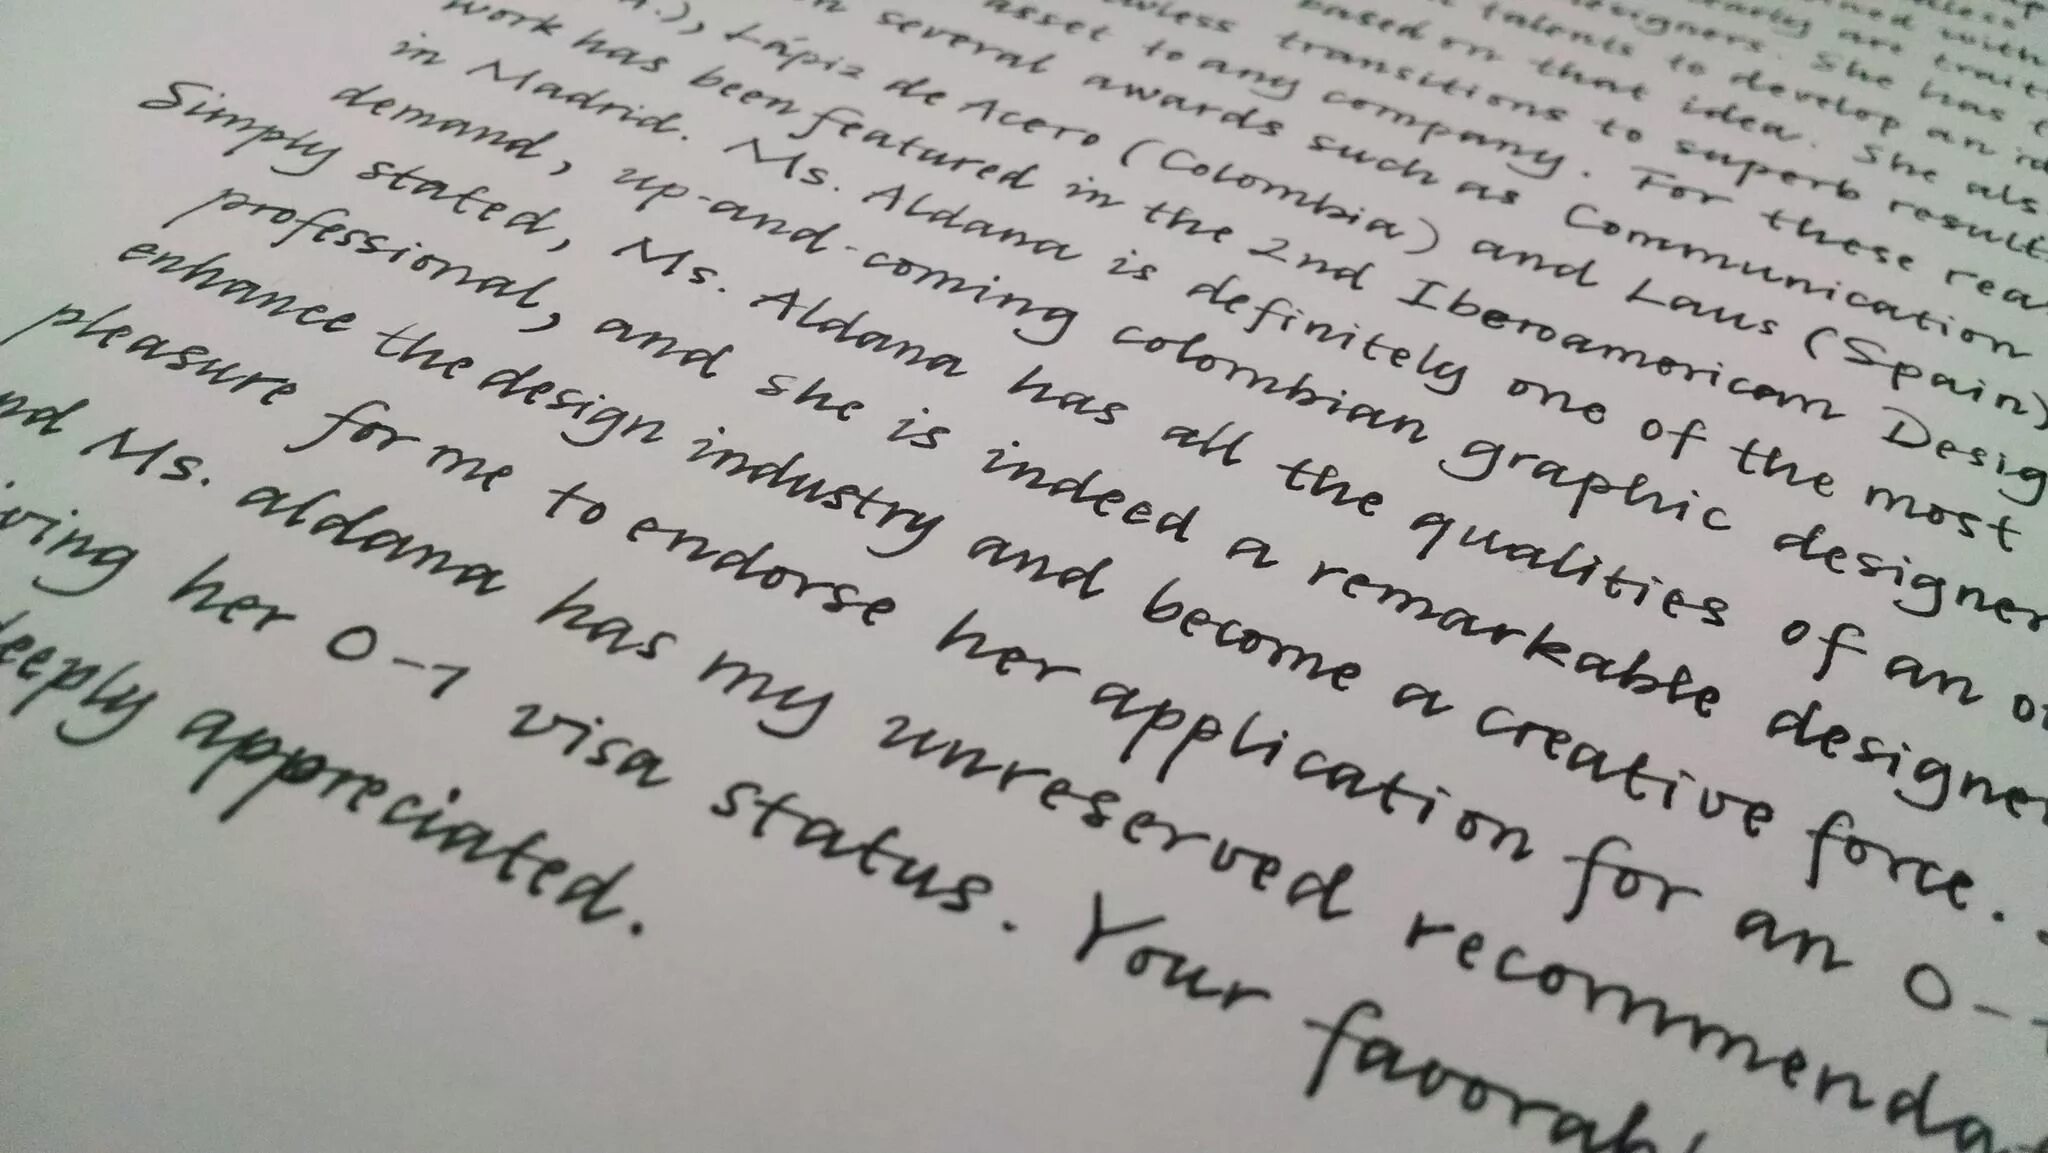 ined with
early are trait
designers. She has
talents to develop an
based on that idea. She als
transitions to superb result
asset to any company. For these rea
several awards such as Communication
.), Lápiz de Acero (Colombia) and Laus (Spain)
work has been featured in the 2nd Iberoamerican Desig
in Madrid. Ms. Aldana is definitely one of the most
demand, up-and-coming colombian graphic designer
Simply stated, Ms. Aldana has all the qualities of an
professional, and she is indeed a remarkable designer
enhance the design industry and become a creative force.
pleasure for me to endorse her application for an O-1
nd Ms. aldana has my unreserved recommenda
iving her O-1 visa status. Your favorabl
deeply appreciated.